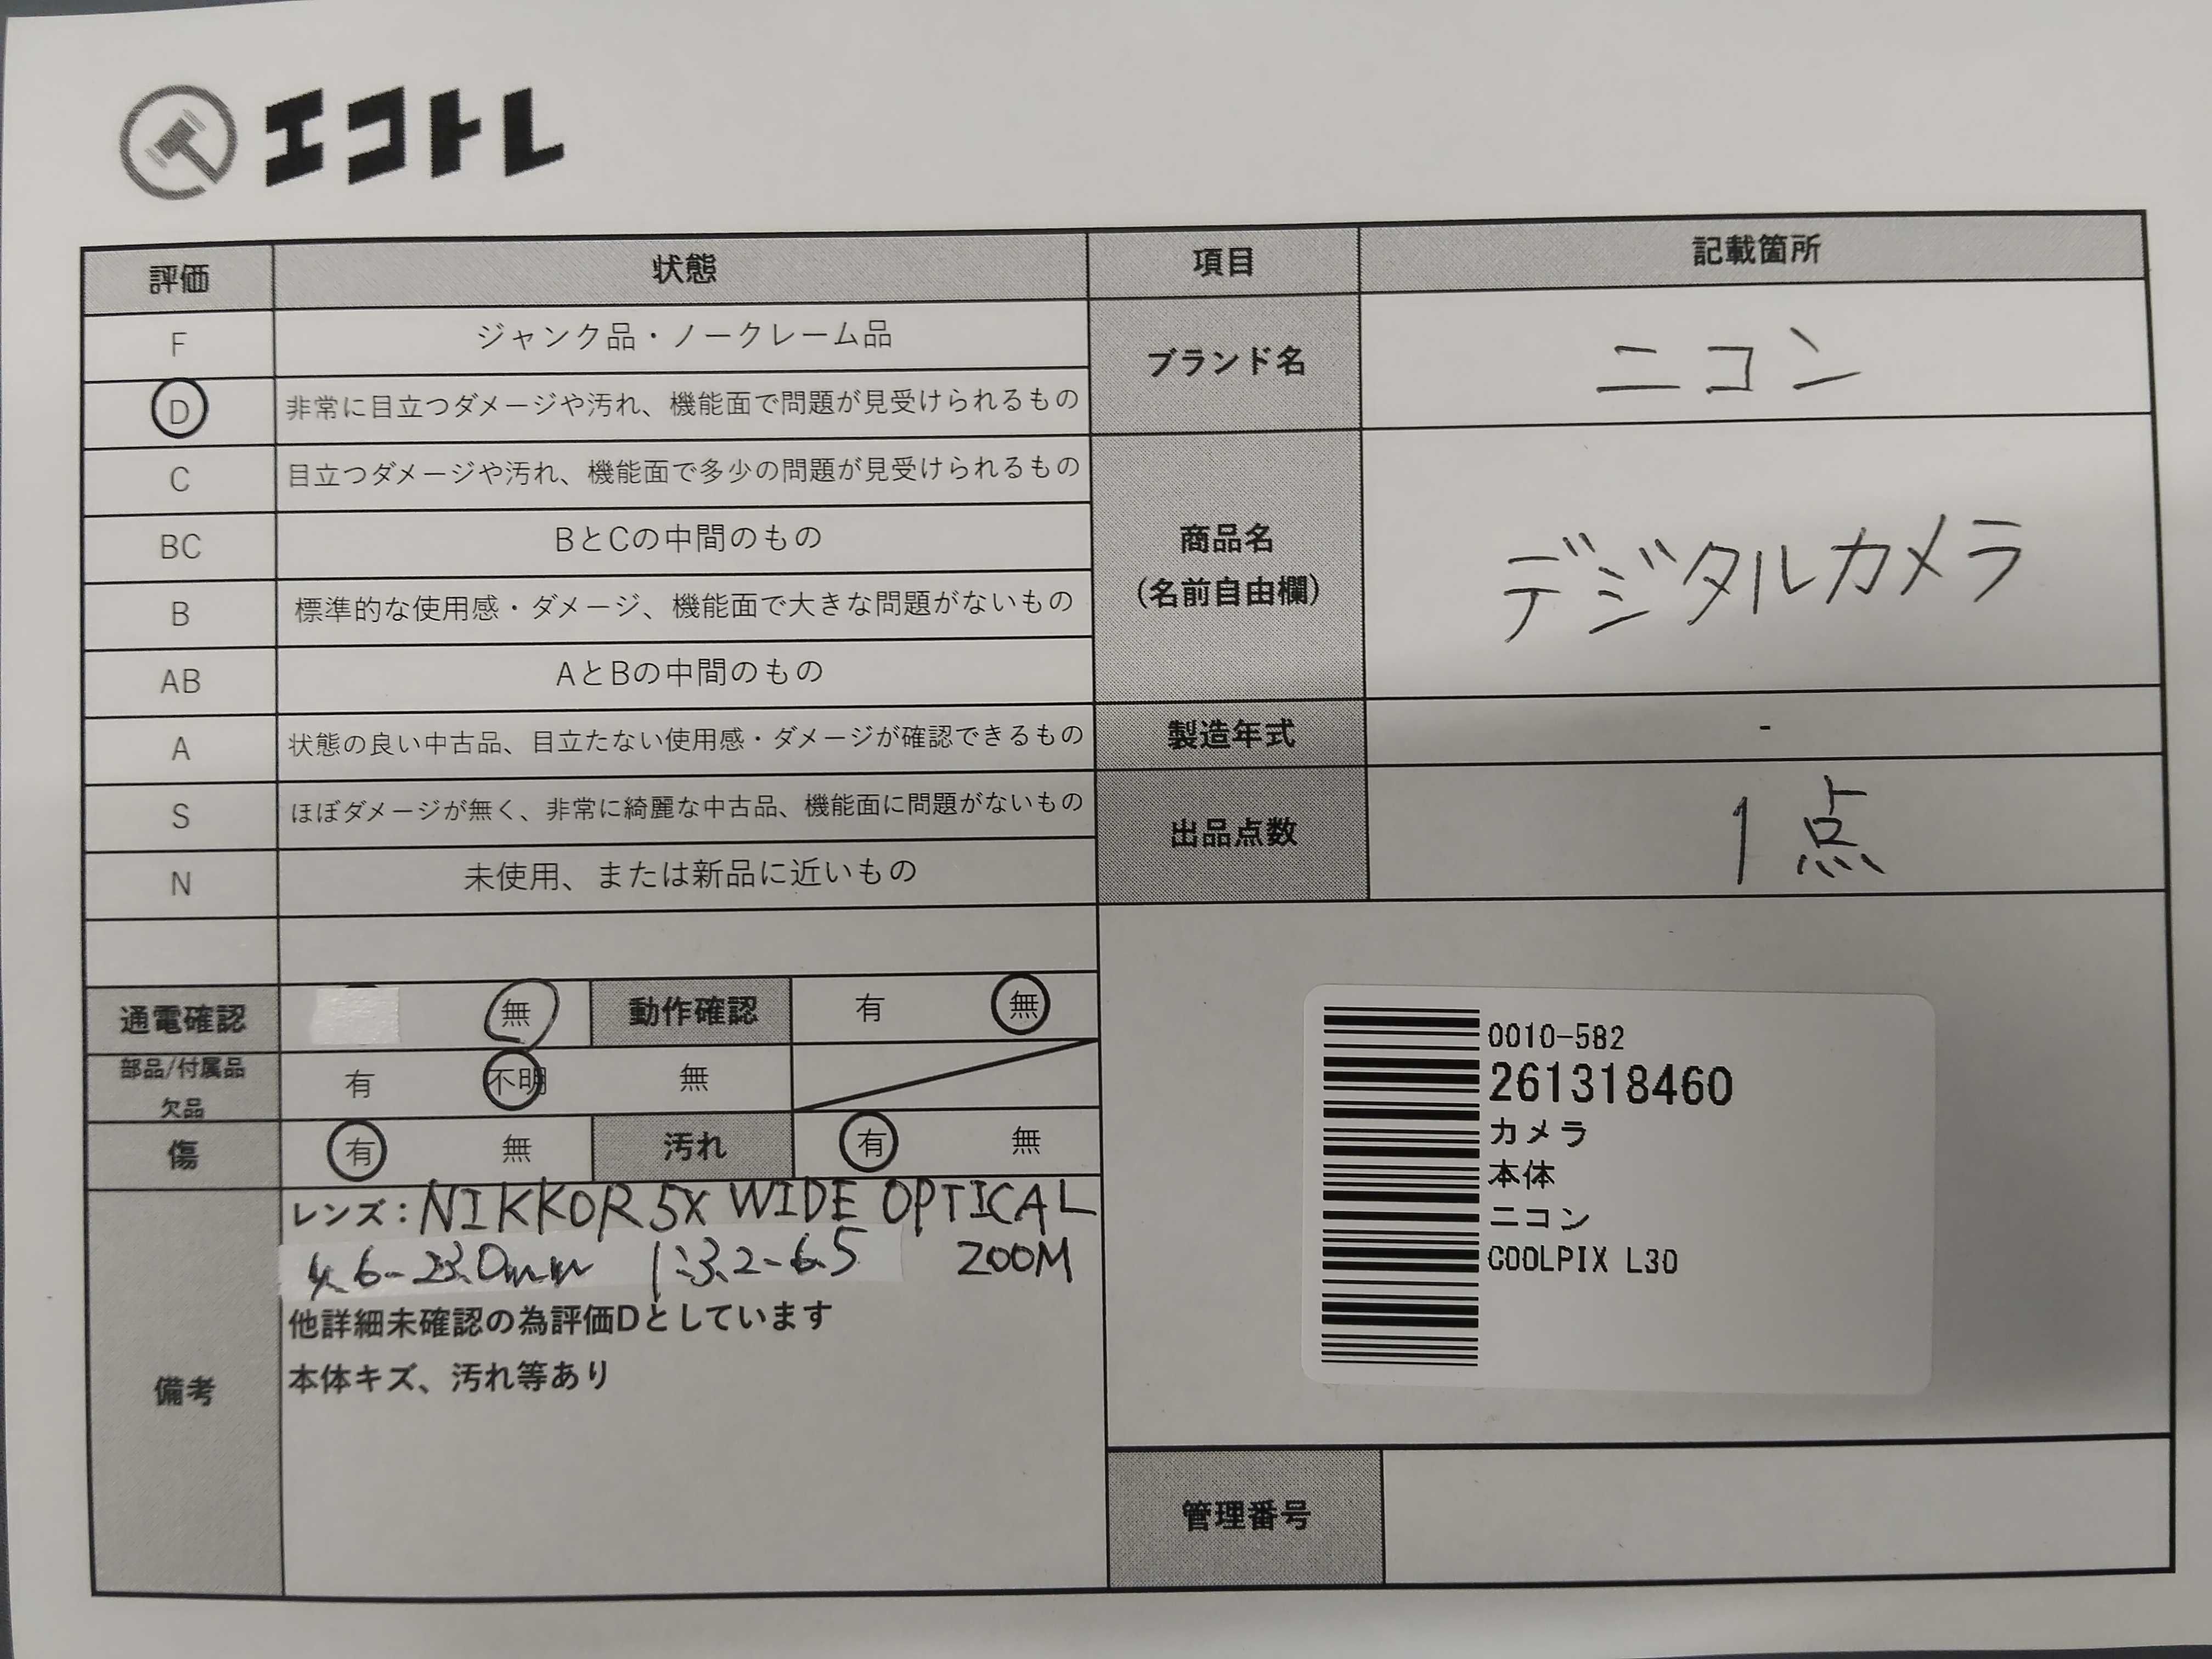 エコトレ
評価 状態 項目 記載箇所
F ジャンク品・ノークレーム品
D 非常に目立つダメージや汚れ、機能面で問題が見受けられるもの
C 目立つダメージや汚れ、機能面で多少の問題が見受けられるもの
BC BとCの中間のもの
B 標準的な使用感・ダメージ、機能面で大きな問題がないもの
AB AとBの中間のもの
A 状態の良い中古品、目立たない使用感・ダメージが確認できるもの
S ほぼダメージが無く、非常に綺麗な中古品、機能面に問題がないもの
N 未使用、または新品に近いもの
ブランド名 ニコン
商品名
(名前自由欄)
デジタルカメラ
製造年式 -
出品点数 1点
通電確認 無 動作確認 有 無
部品/付属品
欠品
有 不明 無
傷 有 無 汚れ 有 無
備考
レンズ:NIKKOR 5X WIDE OPTICAL
4.6-23.0mm 1:3.2-6.5 ZOOM
他詳細未確認の為評価Dとしています
本体キズ、汚れ等あり
0010-582
261318460
カメラ
本体
ニコン
COOLPIX L30
管理番号